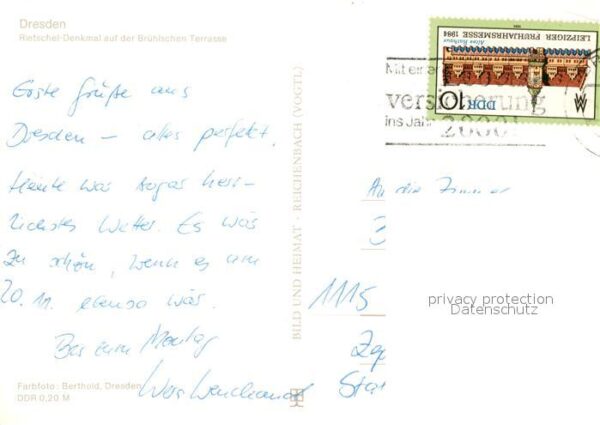 Dresden
Rietschel-Denkmal auf der Brühlschen Terrasse
Erste Grüße aus
Dresden – alles perfekt.
Heute war sogar herr-
lichstes Wetter. Es wär
zu schön, wenn es am
20. 11. ebenso wär.
Bis zum Montag
Farbfoto: Berthold, Dresden
DDR 0,20 M
BILD UND HEIMAT · REICHENBACH (VOGTL)
LEIPZIGER FRÜHJAHRSMESSE 1984
Altes Rathaus
DDR 10
Mit ein
versicherung
ins Jahr 2000!
An die Zimmer
1115
Zep
Str
privacy protection
Datenschutz